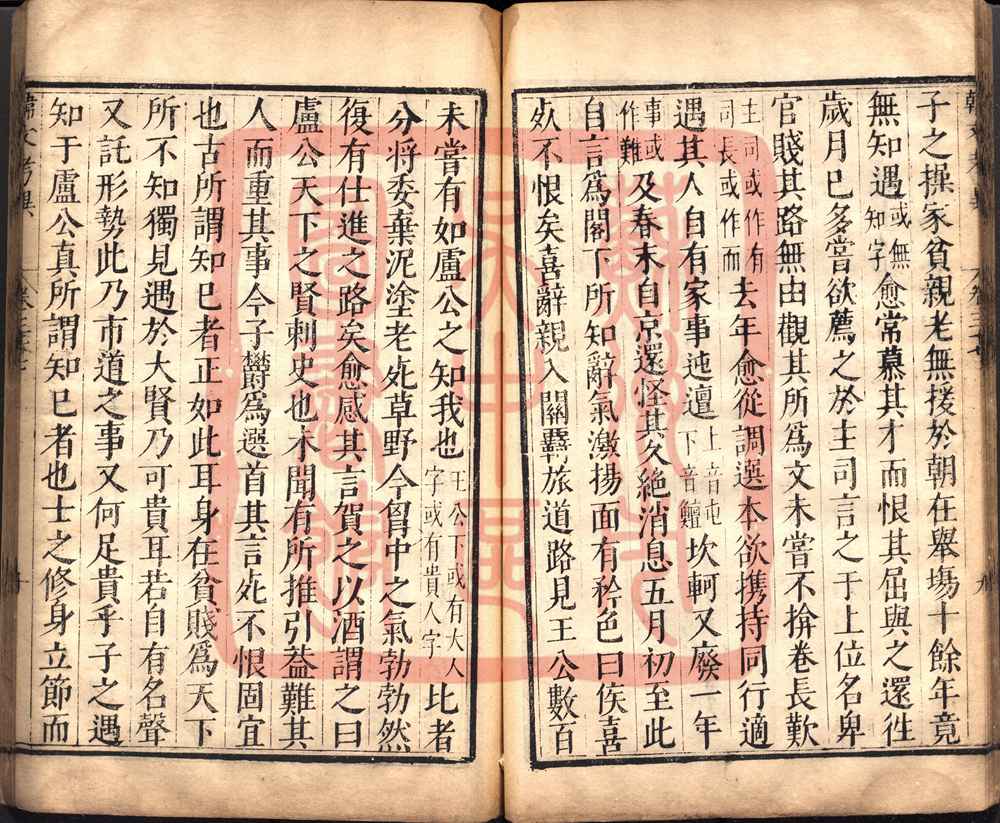 子之操家貧親老無援於朝在舉塲十餘年竟
無知遇或無知字愈常慕其才而恨其屈與之還徃
歲月已多嘗欲薦之於主司言之于上位名卑
官賤其路無由觀其所爲文未嘗不揜卷長歎
主司或作有司長或作而去年愈從調選本欲携持同行適
遇其人自有家事迍邅上音屯下音鱣坎軻又廢一年
事或作難及春末自京還怪其久絶消息五月初至此
自言爲閣下所知辭氣激揚面有矜色曰侯喜
死不恨矣喜辭親入關羇旅道路見王公數百
未嘗有如盧公之知我也王公下或有大人字或有貴人字比者
分將委棄泥塗老死草野今胷中之氣勃勃然
復有仕進之路矣愈感其言賀之以酒謂之曰
盧公天下之賢刺史也未聞有所推引葢難其
人而重其事今子欝爲選首其言死不恨固宜
也古所謂知已者正如此耳身在貧賤爲天下
所不知獨見遇於大賢乃可貴耳若自有名聲
又託形勢此乃市道之事又何足貴乎子之遇
知于盧公真所謂知已者也士之修身立節而
韓文考異